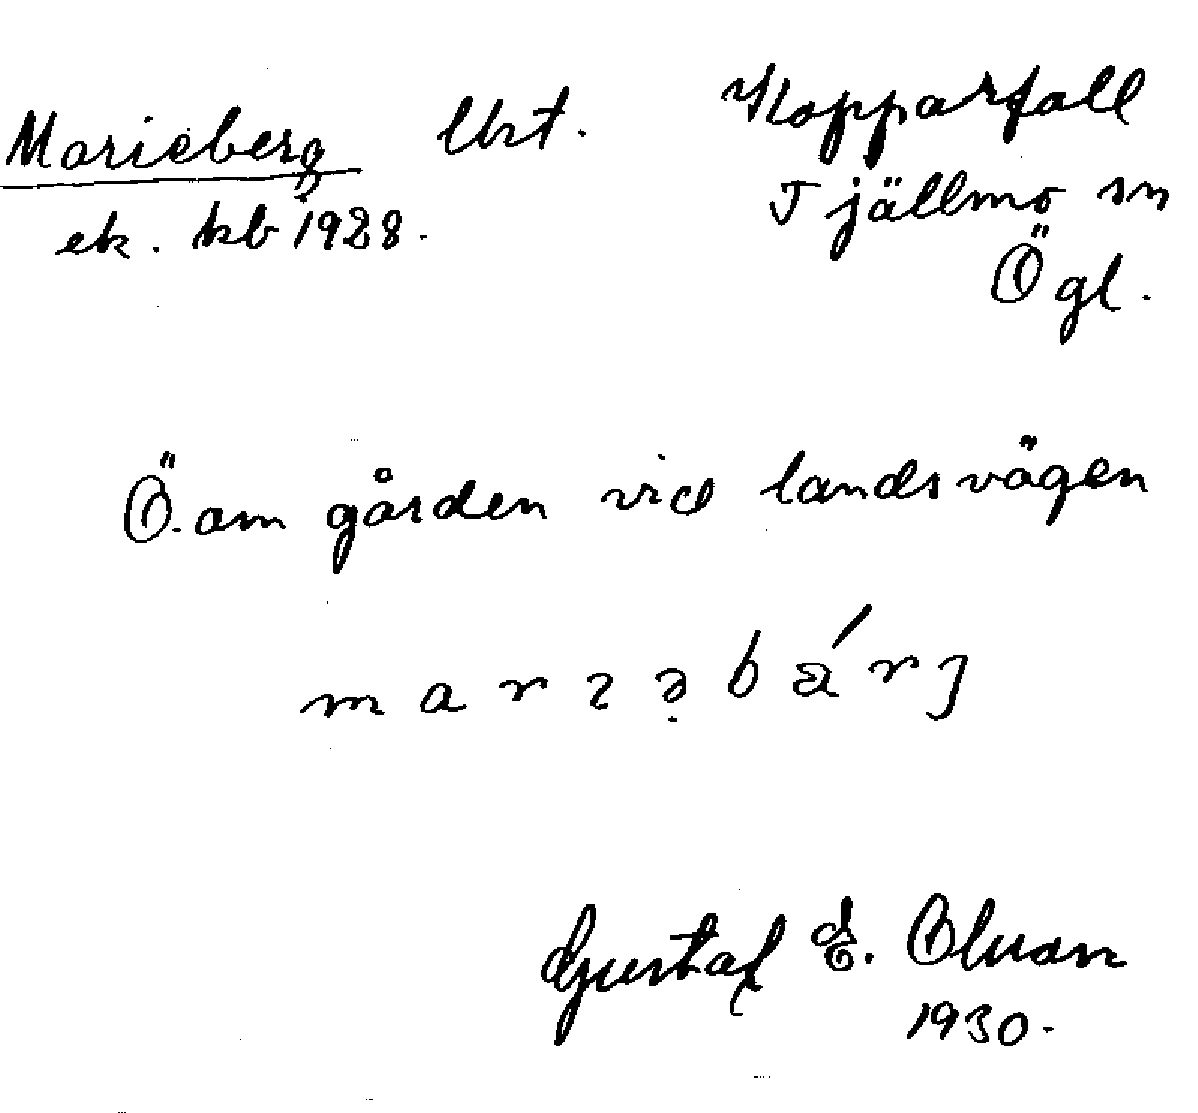 Marieberg lht. Kopparfall
ek. kb 1928. Tjällmo sn
Ögl.
Ö. om gården vid landsvägen
marɩə̣bä́rj
Gustaf E.
1930.